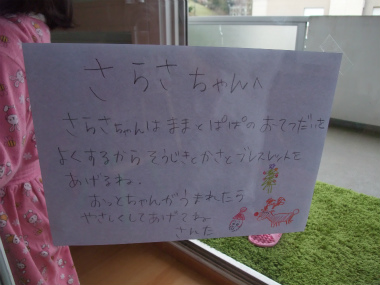 さらさちゃんへ
さらさちゃんはままとぱぱのおてつだいを
よくするからそうじきとかさとブレスレットを
あげるね.
おととちゃんがうまれたら
やさしくしてあげてね
さんた